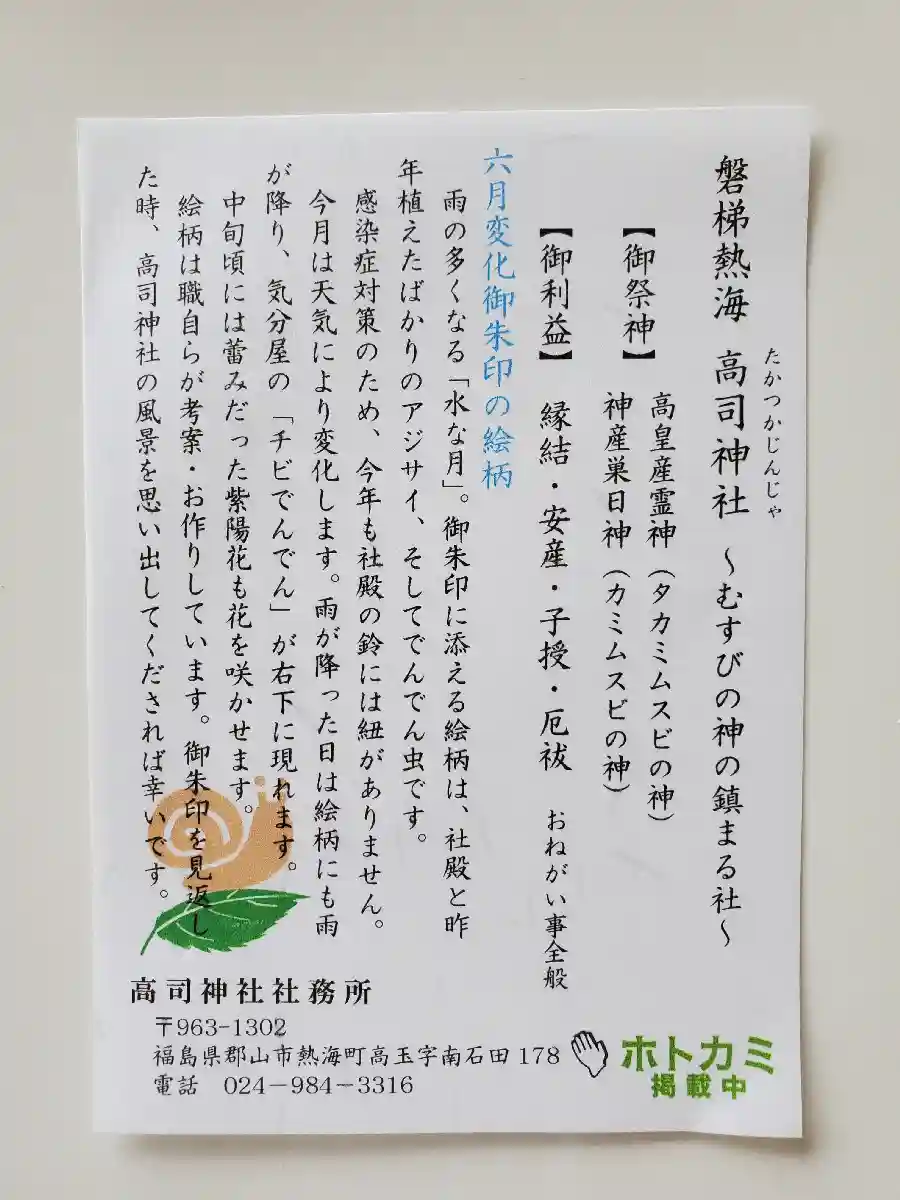 磐梯熱海 高司神社 ～むすびの神の鎮まる社～
たかつかじんじゃ
【御祭神】 高皇産霊神（タカミムスビの神）
神産巣日神（カミムスビの神）
【御利益】 縁結・安産・子授・厄祓 おねがい事全般
六月変化御朱印の絵柄
雨の多くなる「水な月」。御朱印に添える絵柄は、社殿と昨
年植えたばかりのアジサイ、そしてでんでん虫です。
感染症対策のため、今年も社殿の鈴には紐がありません。
今月は天気により変化します。雨が降った日は絵柄にも雨
が降り、気分屋の「チビでんでん」が右下に現れます。
中旬頃には蕾みだった紫陽花も花を咲かせます。
絵柄は職自らが考案・お作りしています。御朱印を見返し
た時、高司神社の風景を思い出してくだされば幸いです。
高司神社社務所
〒963-1302
福島県郡山市熱海町高玉字南石田178
電話 024－984－3316
ホトカミ
掲載中